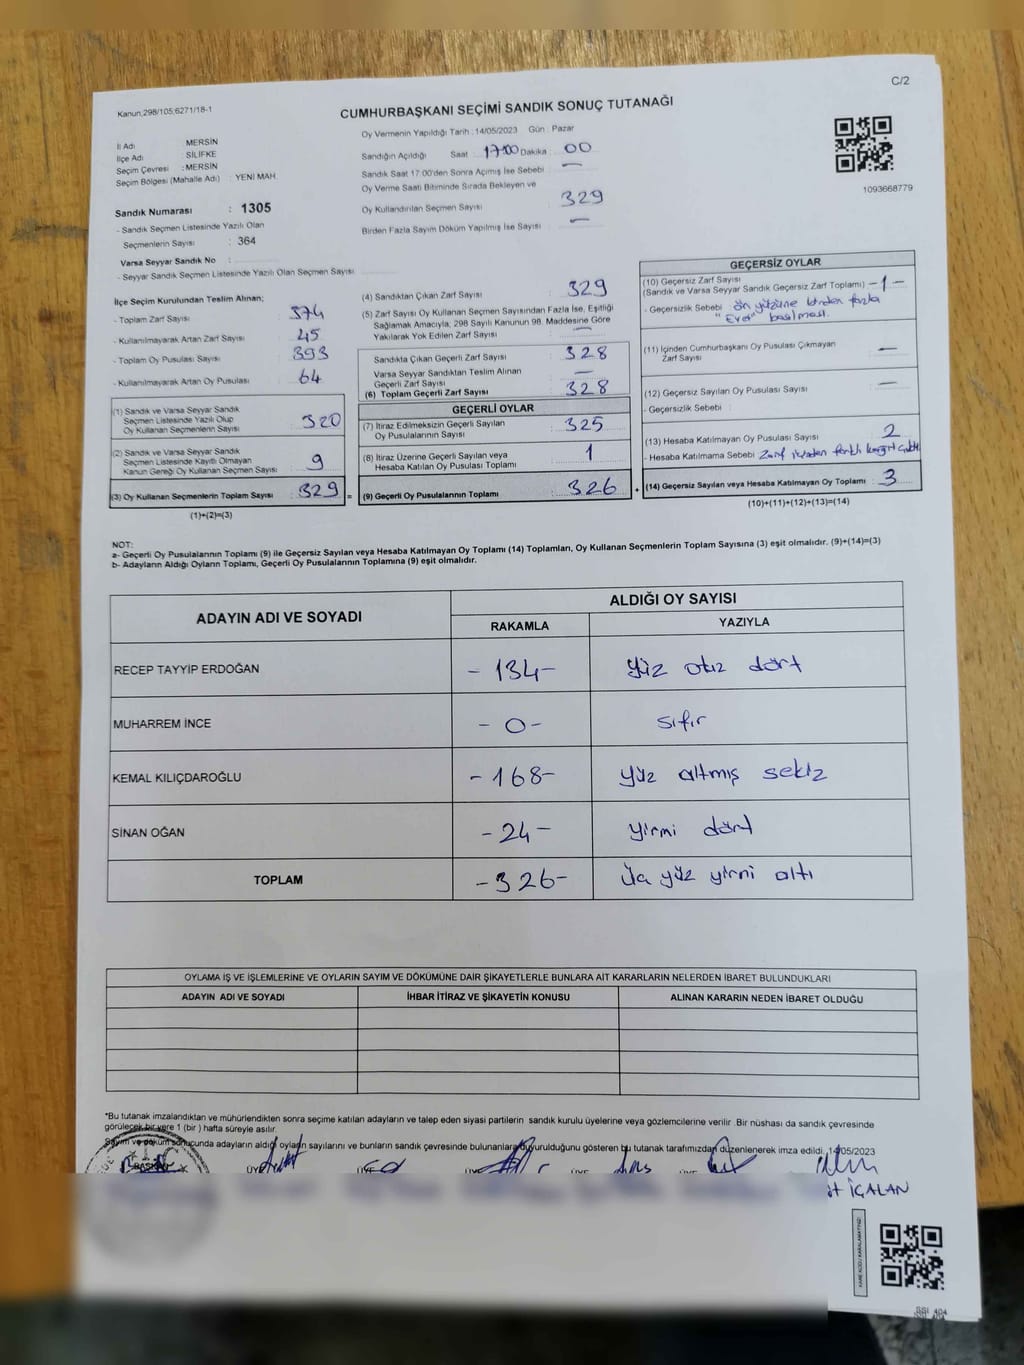 C/2
Kanun;298/105;6271/18-1
CUMHURBAŞKANI SEÇİMİ SANDIK SONUÇ TUTANAĞI
İl Adı MERSİN
İlçe Adı SİLİFKE
Seçim Çevresi : MERSİN
Seçim Bölgesi (Mahalle Adı) : YENİ MAH.
Oy Vermenin Yapıldığı Tarih : 14/05/2023 Gün : Pazar
Sandığın Açıldığı Saat : 17:00 Dakika : 00
Sandık Saat 17:00'den Sonra Açımış İse Sebebi : —
Oy Verme Saati Bitiminde Sırada Bekleyen ve
Oy Kullandırılan Seçmen Sayısı : 329
Birden Fazla Sayım Döküm Yapılmış İse Sayısı : —
1093668779
Sandık Numarası : 1305
- Sandık Seçmen Listesinde Yazılı Olan
Seçmenlerin Sayısı : 364
Varsa Seyyar Sandık No :
- Seyyar Sandık Seçmen Listesinde Yazılı Olan Seçmen Sayısı
İlçe Seçim Kurulundan Teslim Alınan;
- Toplam Zarf Sayısı : 374
- Kullanılmayarak Artan Zarf Sayısı : 45
- Toplam Oy Pusulası Sayısı : 393
- Kullanılmayarak Artan Oy Pusulası : 64
(1) Sandık ve Varsa Seyyar Sandık
Seçmen Listesinde Yazılı Olup
Oy Kullanan Seçmenlerin Sayısı : 320
(2) Sandık ve Varsa Seyyar Sandık
Seçmen Listesinde Kayıtlı Olmayan
Kanun Gereği Oy Kullanan Seçmen Sayısı : 9
(3) Oy Kullanan Seçmenlerin Toplam Sayısı : 329 =
(1)+(2)=(3)
(4) Sandıktan Çıkan Zarf Sayısı : 329
(5) Zarf Sayısı Oy Kullanan Seçmen Sayısından Fazla İse, Eşitliği
Sağlamak Amacıyla, 298 Sayılı Kanunun 98. Maddesine Göre
Yakılarak Yok Edilen Zarf Sayısı : —
Sandıkta Çıkan Geçerli Zarf Sayısı : 328
Varsa Seyyar Sandıktan Teslim Alınan
Geçerli Zarf Sayısı : —
(6) Toplam Geçerli Zarf Sayısı : 328
GEÇERLİ OYLAR
(7) İtiraz Edilmeksizin Geçerli Sayılan
Oy Pusulalarının Sayısı : 325
(8) İtiraz Üzerine Geçerli Sayılan veya
Hesaba Katılan Oy Pusulası Toplamı : 1
(9) Geçerli Oy Pusulalarının Toplamı : 326 +
GEÇERSİZ OYLAR
(10) Geçersiz Zarf Sayısı
(Sandık ve Varsa Seyyar Sandık Geçersiz Zarf Toplamı) -1-
- Geçersizlik Sebebi : ön yüzüne birden fazla
"Evet" basılması.
(11) İçinden Cumhurbaşkanı Oy Pusulası Çıkmayan
Zarf Sayısı : —
(12) Geçersiz Sayılan Oy Pusulası Sayısı : —
- Geçersizlik Sebebi :
(13) Hesaba Katılmayan Oy Pusulası Sayısı : 2
- Hesaba Katılmama Sebebi : Zarf içinden farklı kağıt
(14) Geçersiz Sayılan veya Hesaba Katılmayan Oy Toplamı : 3
(10)+(11)+(12)+(13)=(14)
NOT:
a- Geçerli Oy Pusulalarının Toplamı (9) ile Geçersiz Sayılan veya Hesaba Katılmayan Oy Toplamı (14) Toplamları, Oy Kullanan Seçmenlerin Toplam Sayısına (3) eşit olmalıdır. (9)+(14)=(3)
b- Adayların Aldığı Oyların Toplamı, Geçerli Oy Pusulalarının Toplamına (9) eşit olmalıdır.
ADAYIN ADI VE SOYADI ALDIĞI OY SAYISI
RAKAMLA YAZIYLA
RECEP TAYYİP ERDOĞAN - 134 - Yüz otuz dört
MUHARREM İNCE - 0 - sıfır
KEMAL KILIÇDAROĞLU - 168 - yüz altmış sekiz
SİNAN OĞAN - 24 - yirmi dört
TOPLAM - 326 - Üç yüz yirmi altı
OYLAMA İŞ VE İŞLEMLERİNE VE OYLARIN SAYIM VE DÖKÜMÜNE DAİR ŞİKAYETLERLE BUNLARA AİT KARARLARIN NELERDEN İBARET BULUNDUKLARI
ADAYIN ADI VE SOYADI İHBAR İTİRAZ VE ŞİKAYETİN KONUSU ALINAN KARARIN NEDEN İBARET OLDUĞU
*Bu tutanak imzalandıktan ve mühürlendikten sonra seçime katılan adayların ve talep eden siyasi partilerin sandık kurulu üyelerine veya gözlemcilerine verilir .Bir nüshası da sandık çevresinde
görülecek bir yere 1 (bir ) hafta süreyle asılır.
Sayım ve döküm sonucunda adayların aldığı oyların sayılarını ve bunların sandık çevresinde bulunanlara duyurulduğunu gösteren bu tutanak tarafımızdan düzenlenerek imza edildi. 14/05/2023
BAŞKAN
İÇALAN